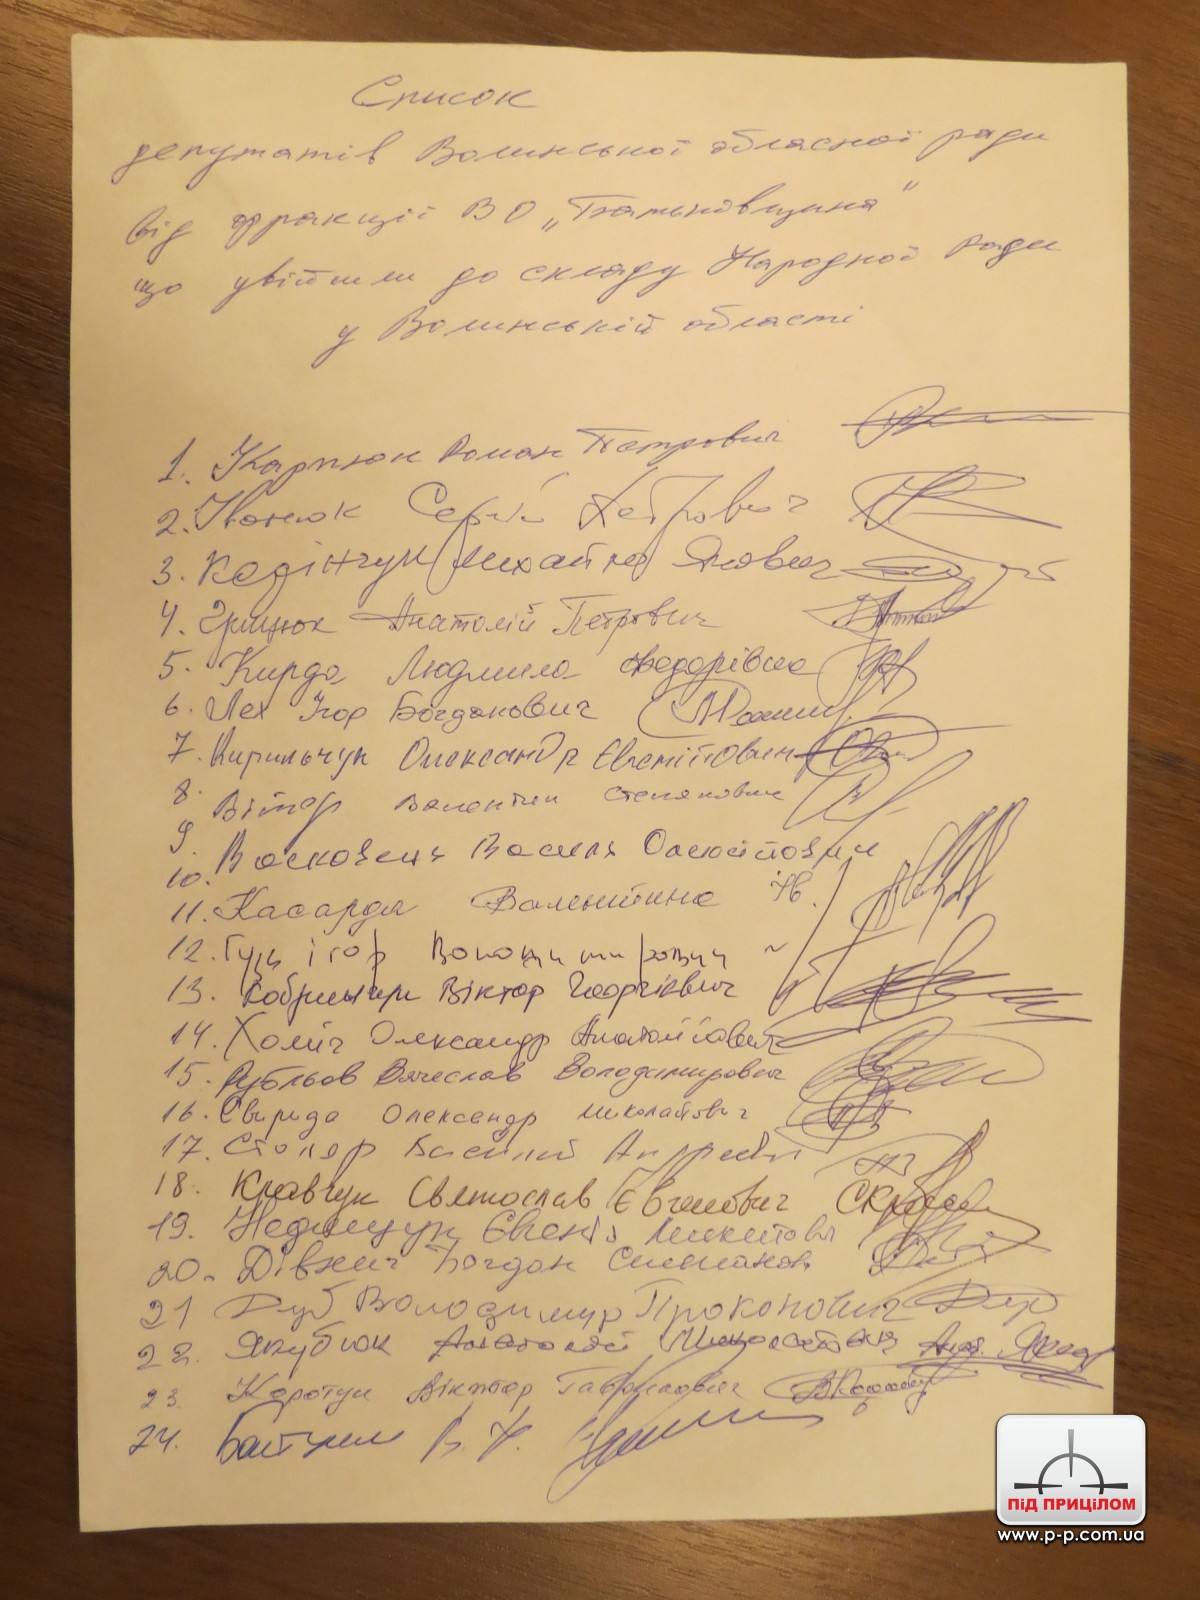 Список
депутатів Волинської обласної ради
від фракції ВО „Батьківщина"
що увійшли до складу Народної Ради
у Волинській області
1. Карпюк Роман Петрович
2. Іванюк Сергій Петрович
3. Кодінчук Михайло Якович
4. Грицюк Анатолій Петрович
5. Кирда Людмила Федорівна
6. Лех Ігор Богданович
7. Кирильчук Олександр Євгенійович
8. Вітер Валентин Степанович
9.
10. Василь
11. Касарда Валентина Ів.
12. Гузь Ігор Володимирович
13. Віктор Георгієвич
14. Хоміч Олександр Анатолійович
15. Рубльов Вячеслав Володимирович
16. Свирида Олександр Миколайович
17. Столяр Василь Андрійов
18. Кравчук Святослав Євгенович
19. Недищук Євгеній Микитов
20. Богдан
21 Дуб Володимир Прокопович
22. Якубюк Анатолій Миколайович
23. Коротун Віктор Гаврилович
24. В.
ПІД ПРИЦІЛОМ
www.p-p.com.ua